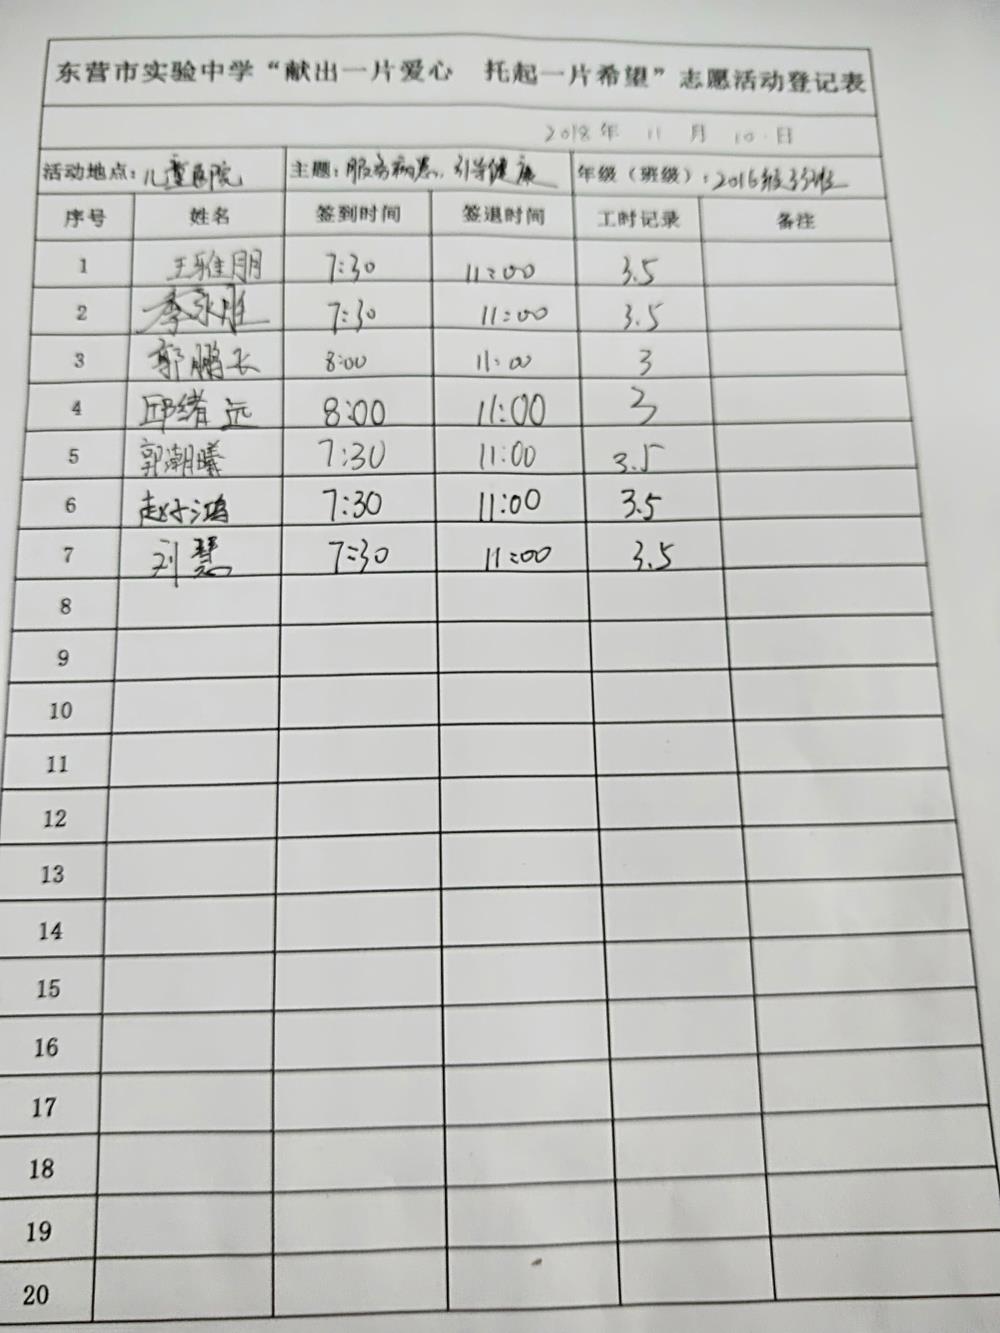 东营市实验中学“献出一片爱心 托起一片希望”志愿活动登记表
2018年 11 月 10 日
活动地点：儿童医院 主题：服务病患，引导健康 年级（班级）：2016级
序号 姓名 签到时间 签退时间 工时记录 备注
1 王雅朋 7:30 11:00 3.5
2 李永胜 7:30 11:00 3.5
3 郭鹏长 8:00 11:00 3
4 邱绪远 8:00 11:00 3
5 郭潮曦 7:30 11:00 3.5
6 赵子鸿 7:30 11:00 3.5
7 刘慧 7:30 11:00 3.5
8
9
10
11
12
13
14
15
16
17
18
19
20